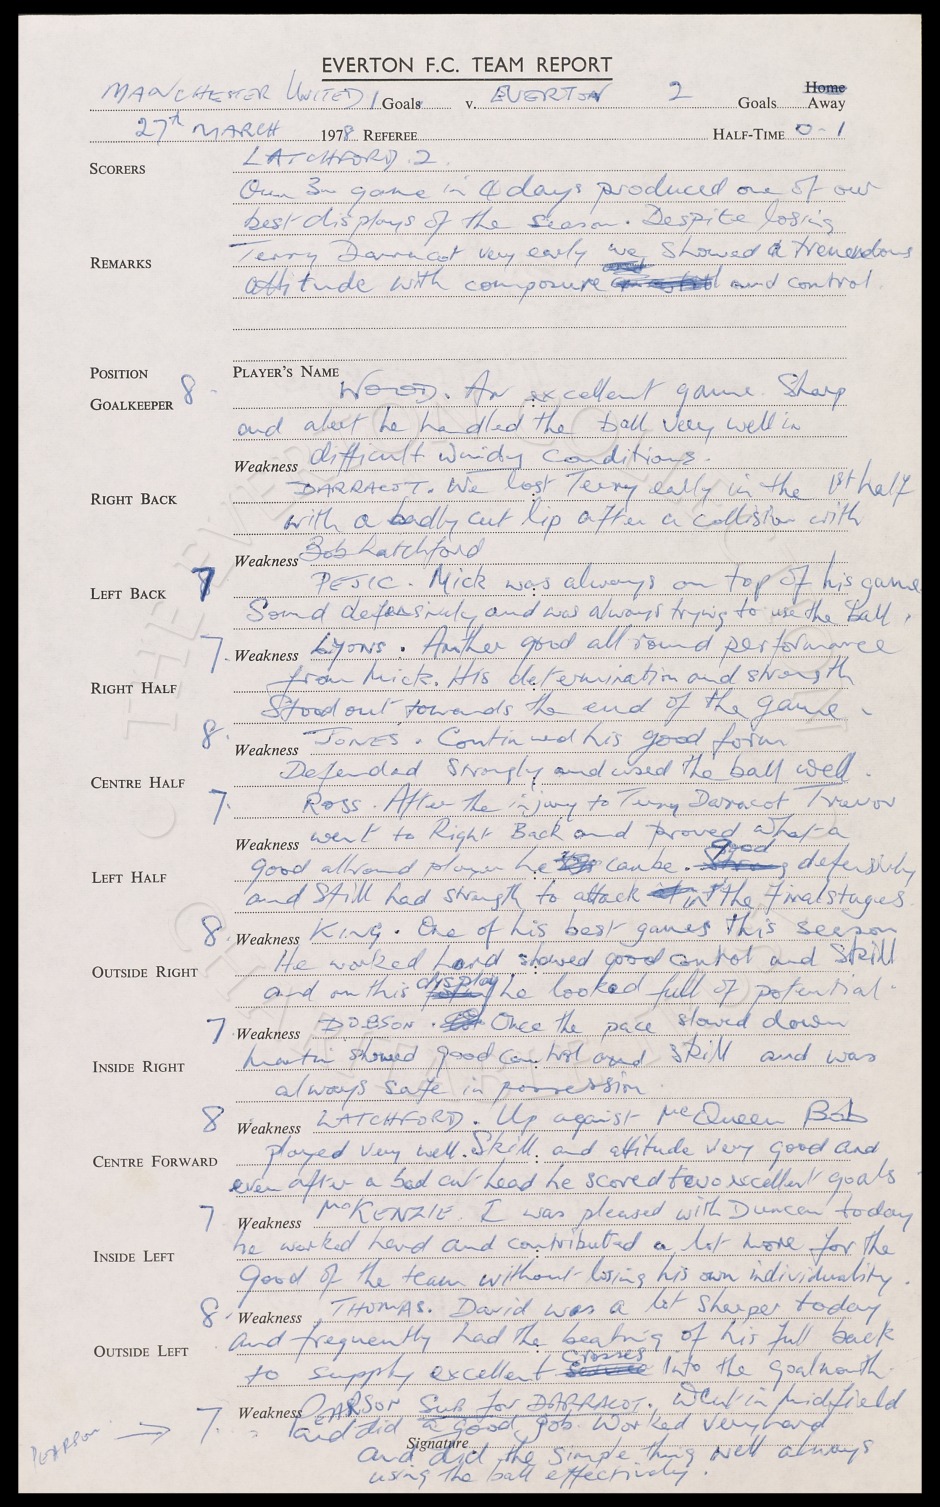 EVERTON F.C. TEAM REPORT
MANCHESTER UNITED 1 Goals v. EVERTON 2 Goals Home Away
27th MARCH 1978 REFEREE HALF-TIME 0-1
SCORERS LATCHFORD. 2.
Our 3rd game in 4 days produced one of our
best displays of the season. Despite losing
REMARKS Terry Darracot very early we showed a tremendous
attitude with composure and control.
POSITION PLAYER'S NAME
GOALKEEPER 8. WOOD. An excellent game. Sharp
and alert he handled the ball very well in
Weakness difficult windy conditions.
RIGHT BACK DARRACOT. We lost Terry early in the 1st half
with a badly cut lip after a collision with
Weakness Bob Latchford
LEFT BACK 7 PEJIC. Mick was always on top of his game
Sound defensively and was always trying to use the ball.
7. Weakness Lyons. Another good all round performance
RIGHT HALF from Mick. His determination and strength
Stood out towards the end of the game.
8. Weakness JONES. Continued his good form
CENTRE HALF Defended strongly and used the ball well.
7. ROSS. After the injury to Terry Darracot Trevor
Weakness went to Right Back and proved what a
LEFT HALF good allround player he can be. good defensively
and still had strength to attack in the final stages.
8. Weakness KING. One of his best games this season
OUTSIDE RIGHT He worked hard showed good control and skill
and on this display he looked full of potential.
7. Weakness DOBSON. Once the pace slowed down
INSIDE RIGHT martin showed good control and skill and was
always safe in possession.
8 Weakness LATCHFORD. Up against McQueen Bob
CENTRE FORWARD played very well. Skill and attitude very good and
even after a bad cut head he scored two excellent goals
7 Weakness McKENZIE. I was pleased with Duncan today
INSIDE LEFT he worked hard and contributed a lot more for the
good of the team without losing his own individuality.
8. Weakness THOMAS. David was a lot sharper today
OUTSIDE LEFT and frequently had the beating of his full back
to supply excellent crosses into the goalmouth.
PEARSON → 7. Weakness PEARSON Sub for DARRACOT. Went in midfield
and did a good job. Worked very hard
Signature and did the simple thing well always
using the ball effectively.